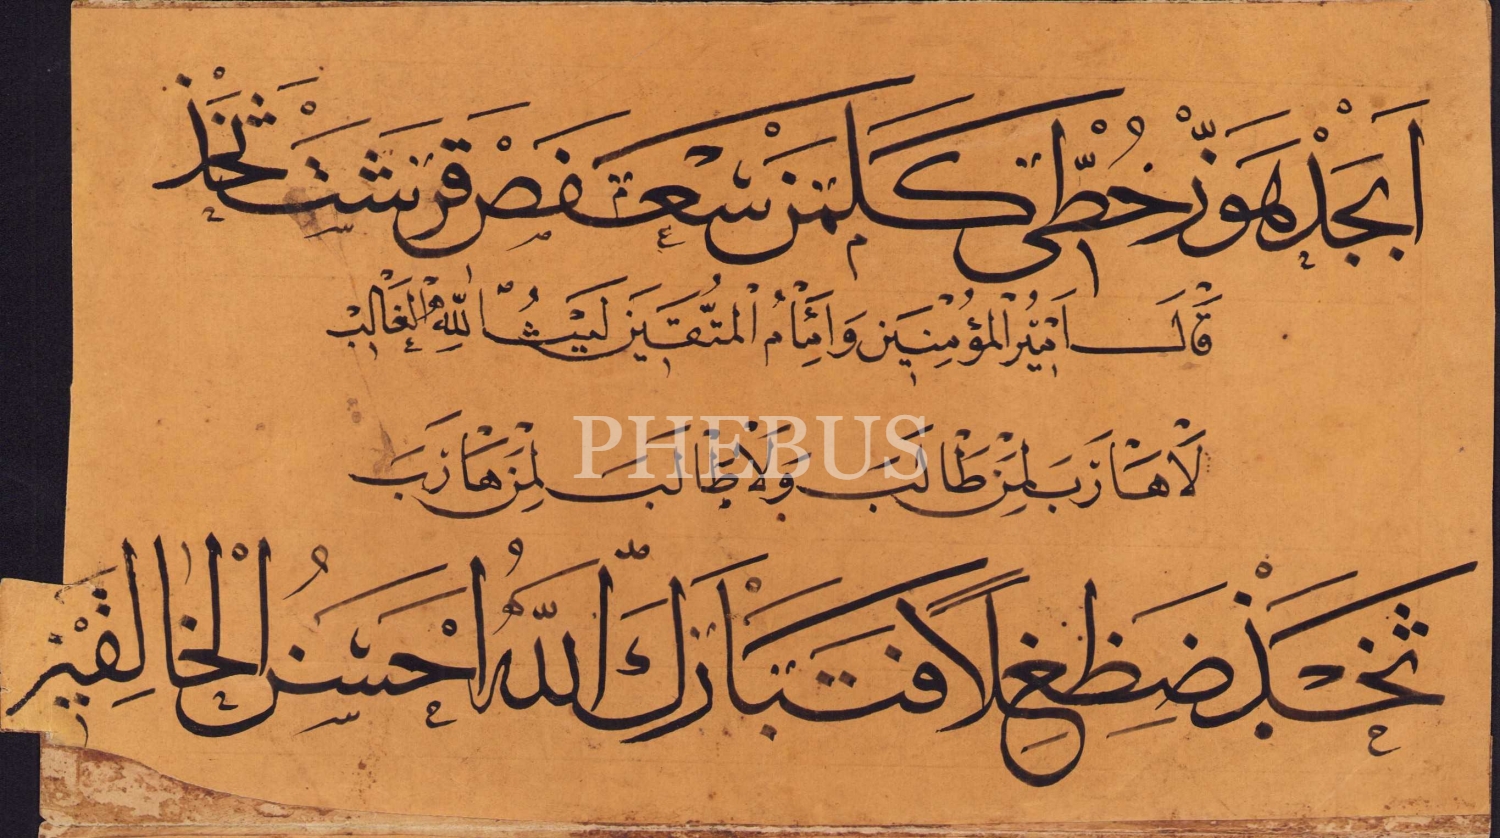 اَبْجَدْ هَوَّزْ حُطِّى كَلَمَنْ سَعْفَصْ قَرَشَتْ ثَخَذْ
قَالَ اَمِيْرُ الْمُؤْمِنِيْنَ وَاِمَامُ الْمُتَّقِيْنَ لَيْثُ اللّٰهِ الْغَالِبْ
PHEBUS
لَا هَارَبَ لِمَنْ طَالَبَ وَلَا طَالَبَ لِمَنْ هَارَبَ
ثَخَذْ ضَظِغْلًا فَتَبَارَكَ اللّٰهُ اَحْسَنُ الْخَالِقِيْنَ